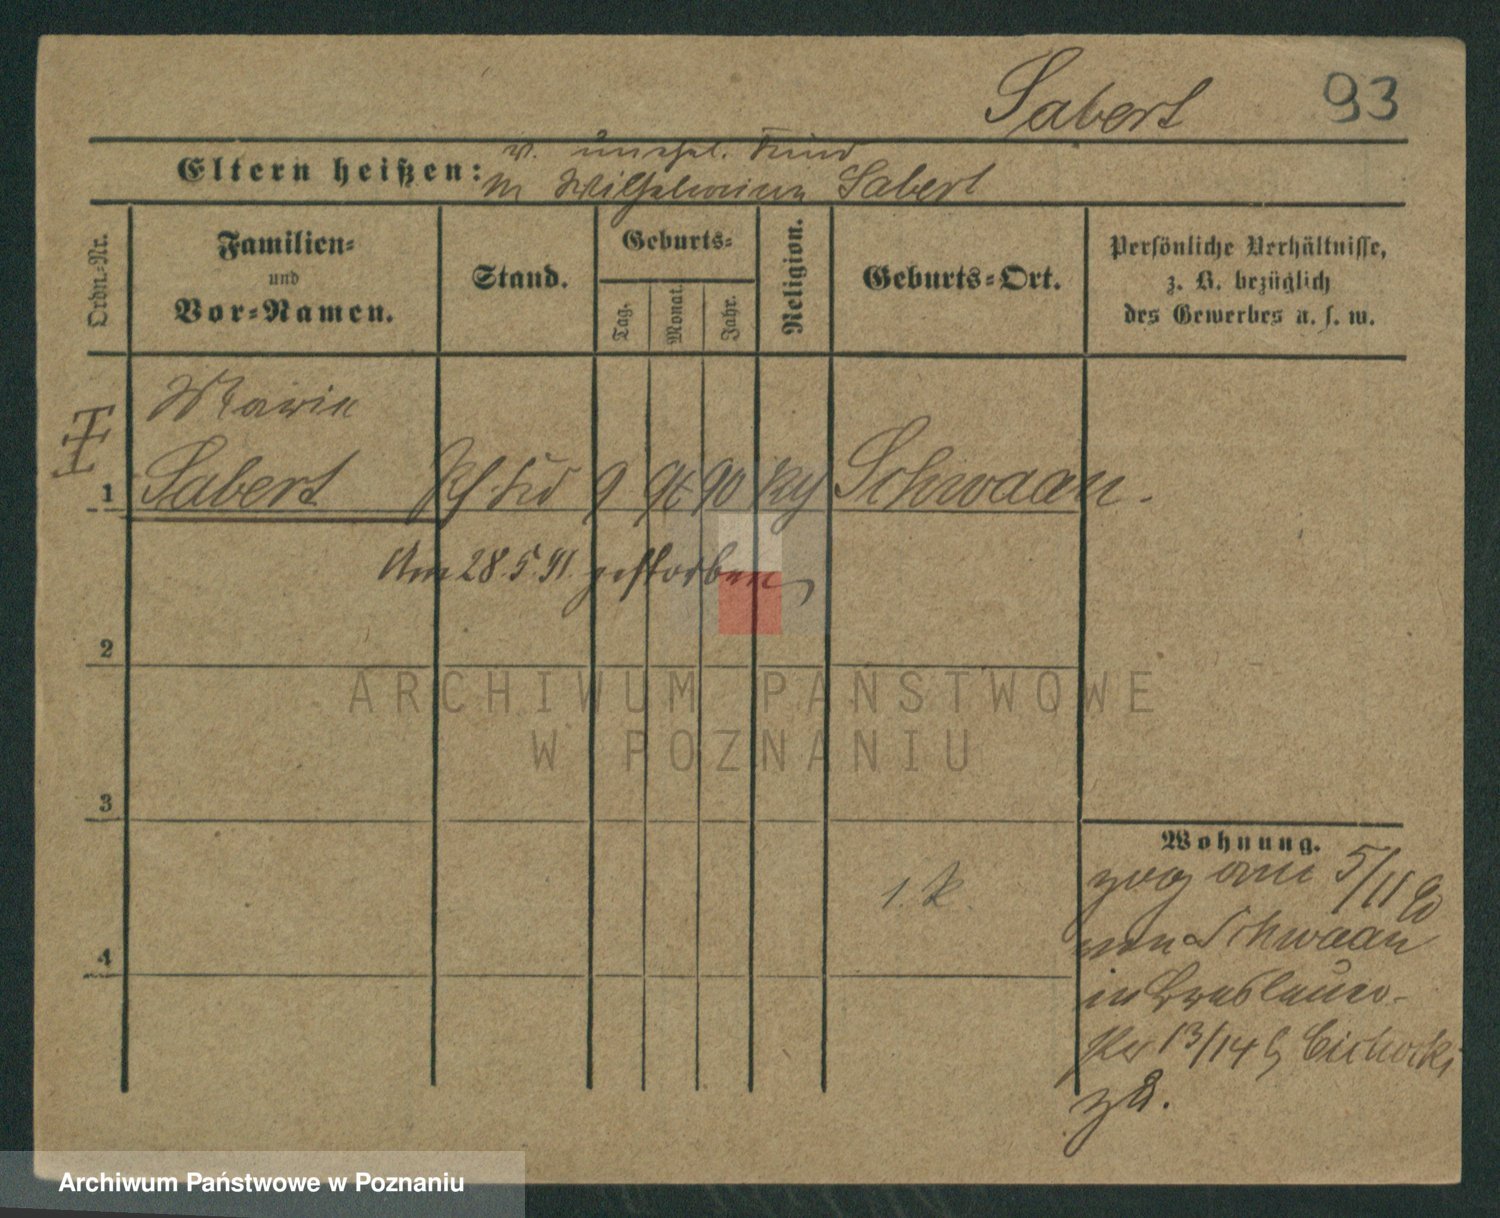 Sabert 93
Eltern heißen:
u. unehel. Kind
M Wilhelmine Sabert
Ordn.-Nr.
Familien-
und
Vor-Namen.
Stand.
Geburts-
Tag.
Monat.
Jahr.
Religion.
Geburts-Ort.
Persönliche Verhältnisse,
z. B. bezüglich
des Gewerbes u. s. w.
Marie
1 Sabert 9 90 Schwaan.
Am 28.5.91. gestorben
2
3
4
1. K.
Wohnung.
zog am 5/11 90
von Schwaan
in Breslauer-
str 13/14 b Cichocki
zu.
ARCHIWUM PAŃSTWOWE
W POZNANIU
Archiwum Państwowe w Poznaniu